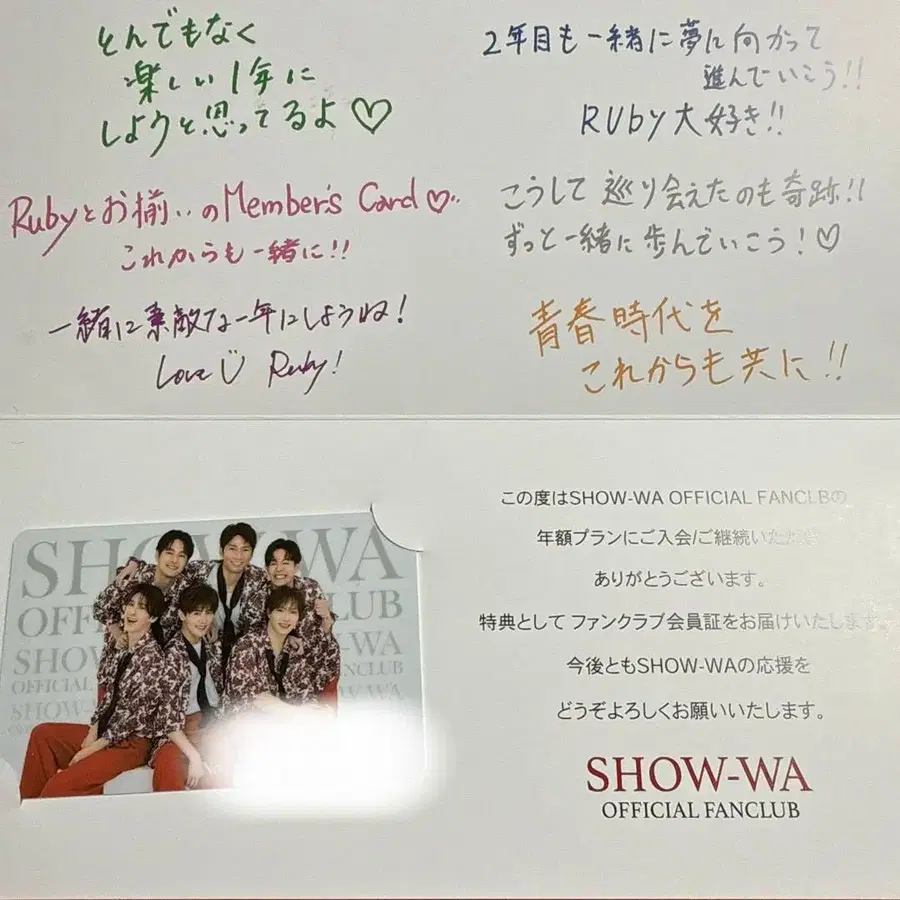 とんでもなく
楽しい1年に
しようと思ってるよ♡
Rubyとお揃いのMember's Card♡
これからも一緒に!!
一緒に素敵な一年にしようね!
Love Ruby!
2年目も一緒に夢に向かって
進んでいこう!!
RUby大好き!!
こうして巡り会えたのも奇跡!!
ずっと一緒に歩んでいこう!♡
青春時代を
これからも共に!!
SHOW-WA
OFFICIAL FANCLUB
SHOW-WA
OFFICIAL FANCLUB
SHOW-WA
この度はSHOW-WA OFFICIAL FANCLBの
年額プランにご入会/ご継続いただき
ありがとうございます。
特典として ファンクラブ会員証をお届けいたします。
今後ともSHOW-WAの応援を
どうぞよろしくお願いいたします。
SHOW-WA
OFFICIAL FANCLUB